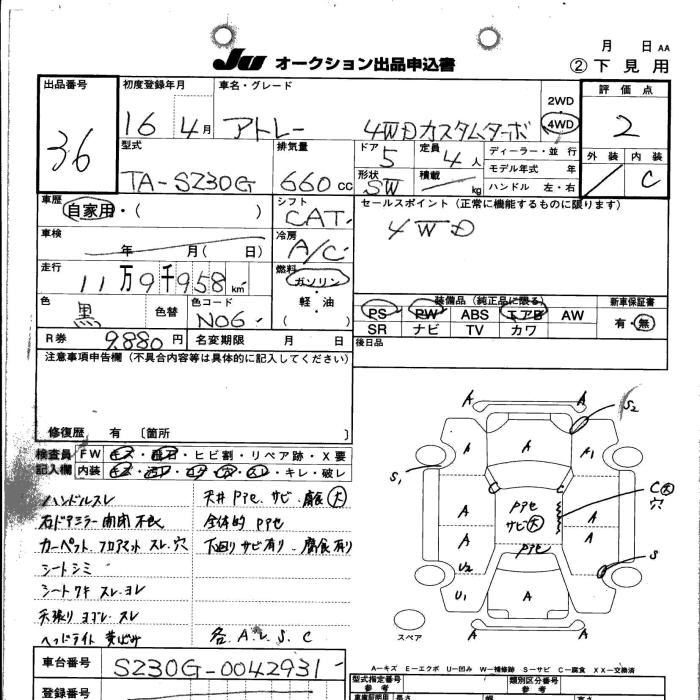 月 日 AA
JU オークション出品申込書
② 下見用
出品番号 36
初度登録年月 16 4月
車名・グレード アトレー 4WD カスタムターボ
2WD 4WD
評価点 2
外装 内装 C
型式 TA-SZ30G
排気量 660cc
ドア 5
定員 4人
ディーラー・並行
モデル年式 年
ハンドル 左・右
形状 SW
積載 kg
車歴 自家用・( )
シフト CAT.
セールスポイント(正常に機能するものに限ります)
4WD
車検 年 月( 日)
冷房 A/C
走行 11万9千958km
燃料 ガソリン・軽油 ( )
色 黒 色替
色コード N06
装備品(純正品に限る)
PS PW ABS エアB AW
SR ナビ TV カワ
新車保証書 有・無
R券 9,880円
名変期限 月 日
後日品
注意事項申告欄(不具合内容等は具体的に記入してください)
修復歴 有 〔箇所 〕
検査員記入欄
FW キズ・飛石・ヒビ割・リペア跡・X要
内装 キズ・汚レ・コゲ・穴・スレ・キレ・破レ
ハンドルスレ
右ドアミラー開閉不良
カーペット.フロアマット スレ.穴
シートシミ
シートワキ スレ.ヨレ
天張り ヨゴレ.スレ
ヘッドライト 黄ばみ
天井 Pアセ サビ.腐食大
全体的 Pアセ
下回りサビ有り.腐食有り
各 A.U.S.C
A
S2
A
A
A1
S1
C大
穴
Pアセ
サビ大
Pアセ
A
A
A
A
U2
U1
S
A
A
スペア
車台番号 SZ30G-0042931-
A—キズ E—エクボ U—凹み W—補修跡 S—サビ C—腐食 XX—交換済
登録番号
型式指定番号 参考
類別区分番号 参考